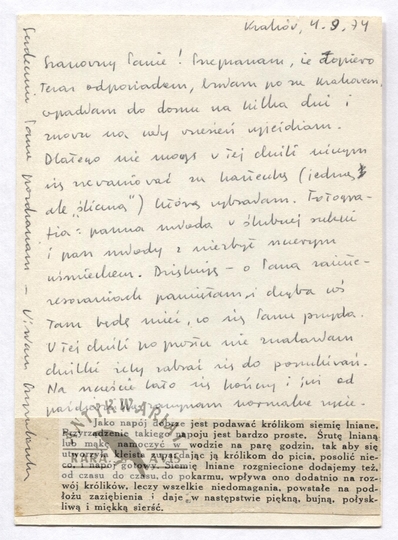 Kraków, 4.9.74
Szanowny Panie! Przepraszam, że dopiero
teraz odpowiadam, bywam poza Krakowem,
wpadam do domu na kilka dni i
znowu na cały wrzesień wyjeżdżam.
Dlatego nie mogę w tej chwili niczym
się zrewanżować za karteczkę (jedną,
ale "śliczną") którą wybrałam. Fotogra-
fia: panna młoda w ślubnej sukni
i pan młody z niezbyt mądrym
uśmiechem. Dziękuję – o Pana zainte-
resowaniach pamiętam, i chyba coś
tam będę mieć, co się Panu przyda.
W tej chwili po prostu nie znalazłam
chwilki żeby zabrać się do poszukiwań.
Na szczęście lato się kończy i już od
października zaczynam normalne życie.
Serdecznie Pana pozdrawiam – Wisława Szymborska
Jako napój dobrze jest podawać królikom siemię lniane.
Przyrządzenie takiego napoju jest bardzo proste. Śrutę lnianą
lub mąkę namoczyć w wodzie na parę godzin, tak aby się
utworzył kleista, podając ją królikom do picia, posolić nie-
co, i napój gotowy. Siemię lniane rozgniecione dodajemy też,
od czasu do czasu, do pokarmu, wpływa ono dodatnio na roz-
wój królików, leczy wszelkie niedomagania, powstałe na pod-
łożu zaziębienia i daje w następstwie piękną, bujną, połysk-
liwą i miękką sierść.
ANTYKWARIAT
RARA AVIS